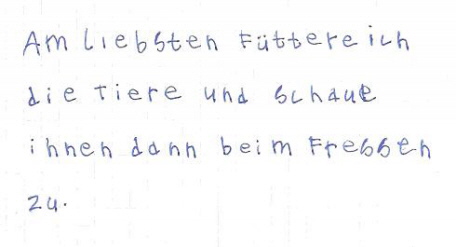 Am Liebsten Füttere ich
die Tiere und schaue
ihnen dann beim Fressen
zu.